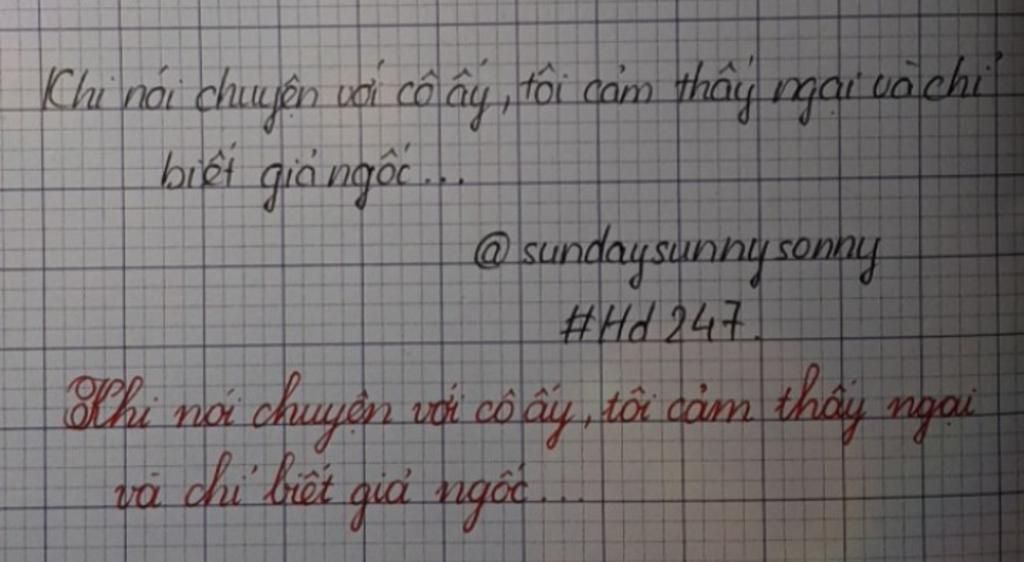 Khi nói chuyện với cô ấy, tôi cảm thấy ngại và chỉ
biết giả ngốc...
@sundaysunnysonny
#Hd 247.
Khi nói chuyện với cô ấy, tôi cảm thấy ngại
và chỉ biết giả ngốc...